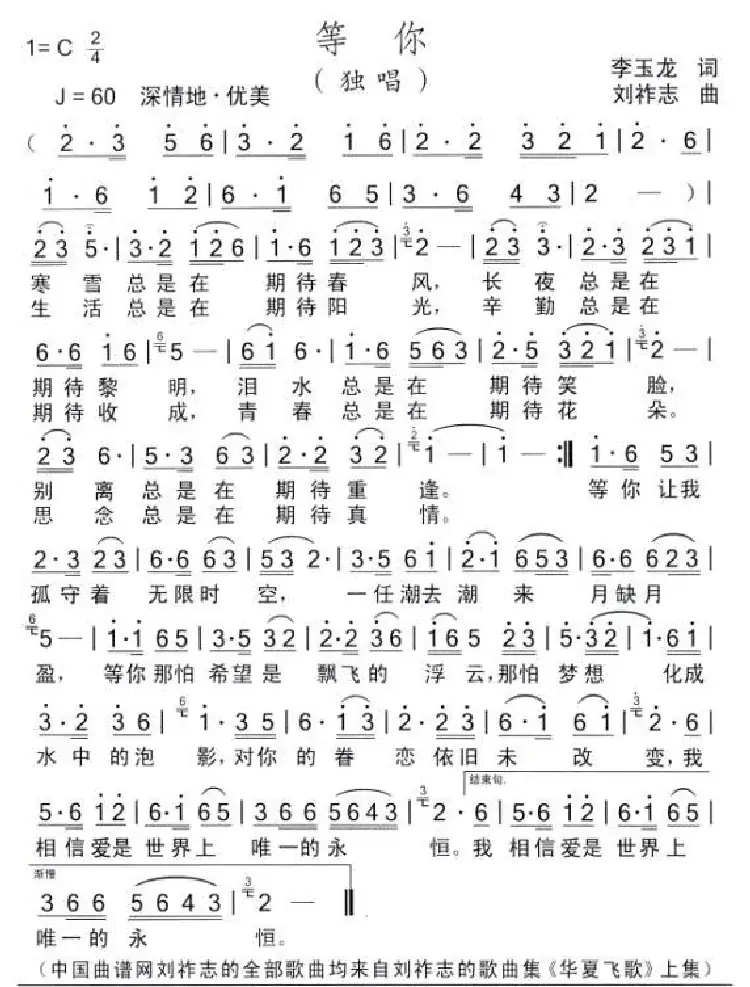 等 你
（独唱）
1= C 2/4
J = 60 深情地·优美
李玉龙 词
刘祚志 曲
( 2 · 3 5 6 | 3 · 2 1 6 | 2 · 2 3 2 1 | 2 · 6 |
1 · 6 1 2 | 6 · 1 6 5 | 3 · 6 4 3 | 2 — ) |
2 3 5 · | 3 · 2 1 2 6 | 1 · 6 1 2 3 | 3 2 — | 2 3 3 · | 2 · 3 2 3 1 |
寒 雪 总 是 在 期 待 春 风， 长 夜 总 是 在
生 活 总 是 在 期 待 阳 光， 辛 勤 总 是 在
6 · 6 1 6 | 6 5 — | 6 1 6 · | 1 · 6 5 6 3 | 2 · 5 3 2 1 | 3 2 — |
期 待 黎 明， 泪 水 总 是 在 期 待 笑 脸，
期 待 收 成， 青 春 总 是 在 期 待 花 朵。
2 3 6 · | 5 · 3 6 3 | 2 · 2 3 2 | 2 1 — | 1 — :‖ 1 · 6 5 3 |
别 离 总 是 在 期 待 重 逢。 等 你 让 我
思 念 总 是 在 期 待 真 情。
2 · 3 2 3 | 6 · 6 6 3 | 5 3 2 · | 3 · 5 6 1 | 2 · 1 6 5 3 | 6 · 6 6 2 3 |
孤 守 着 无 限 时 空， 一 任 潮 去 潮 来 月 缺 月
6 5 — | 1 · 1 6 5 | 3 · 5 3 2 | 2 · 2 3 6 | 1 6 5 2 3 | 5 · 3 2 | 1 · 6 1 |
盈， 等 你 那 怕 希 望 是 飘 飞 的 浮 云，那 怕 梦 想 化 成
3 · 2 3 6 | 6 1 · 3 5 | 6 · 1 3 | 2 · 2 3 | 6 · 1 6 1 | 3 2 · 6 |
水 中 的 泡 影，对 你 的 眷 恋 依 旧 未 改 变，我
结束句.
5 · 6 1 2 | 6 · 1 6 5 | 3 6 6 5 6 4 3 | 3 2 · 6 | 5 · 6 1 2 | 6 · 1 6 5 |
相 信 爱 是 世 界 上 唯 一 的 永 恒。我 相 信 爱 是 世 界 上
渐慢
3 6 6 5 6 4 3 | 3 2 — ‖
唯 一 的 永 恒。
（中国曲谱网刘祚志的全部歌曲均来自刘祚志的歌曲集《华夏飞歌》上集）